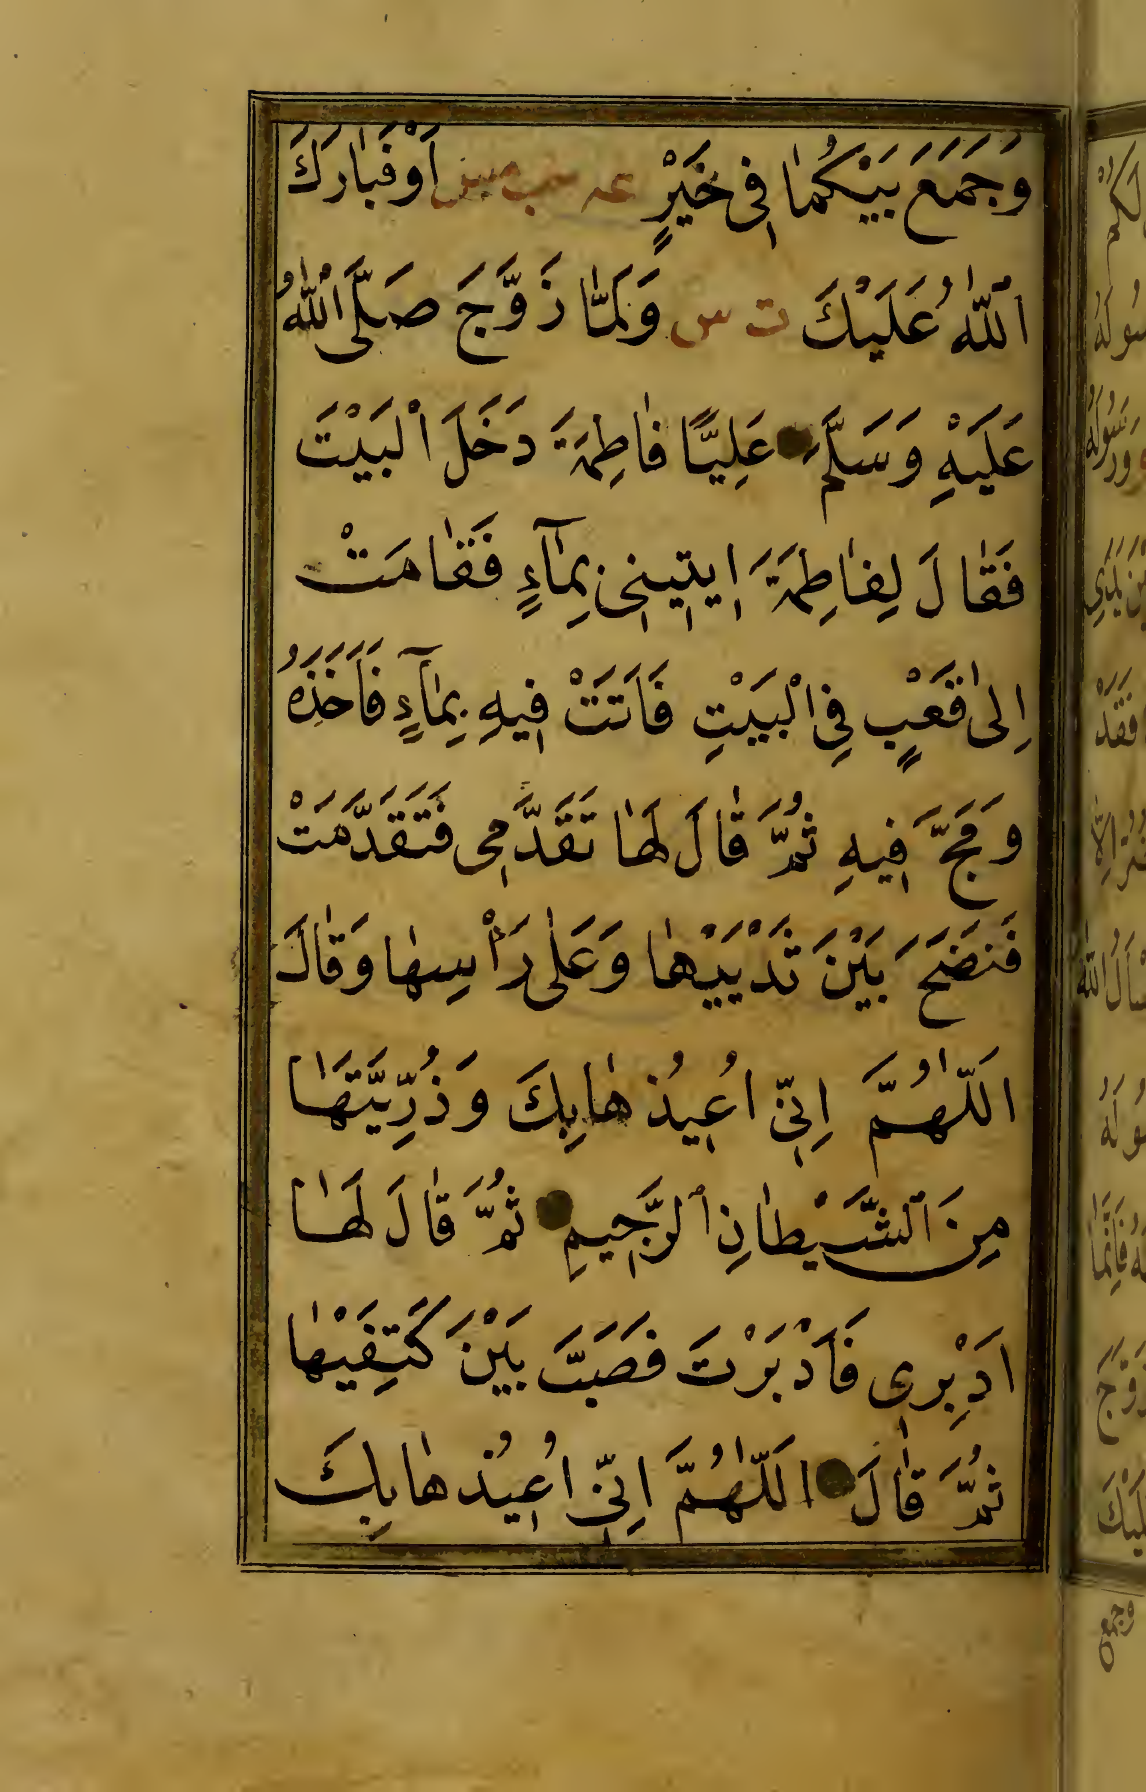 وَجَمَعَ بَيْنَكُمٰا فِي خَيْرٍ عه حب مس اَوْ فَبٰارَكَ
اَللّٰهُ عَلَيْكَ ت س وَلَمّٰا زَوَّجَ صَلَّى اللّٰهُ
عَلَيْهِ وَسَلَّمَ عَلِيًّا فٰاطِمَةَ دَخَلَ الْبَيْتَ
فَقٰالَ لِفٰاطِمَةَ ايتِينِي بِمٰآءٍ فَقٰامَتْ
اِلىٰ قَعْبٍ فِي الْبَيْتِ فَاَتَتْ فِيهِ بِمٰآءٍ فَاَخَذَهُ
وَمَجَّ فِيهِ ثُمَّ قٰالَ لَهٰا تَقَدَّمِي فَتَقَدَّمَتْ
فَنَضَحَ بَيْنَ ثَدْيَيْهٰا وَعَلىٰ رَأْسِهٰا وَقٰالَ
اَللّٰهُمَّ اِنِّي اُعِيذُهٰا بِكَ وَذُرِّيَّتَهٰا
مِنَ الشَّيْطٰانِ الرَّجِيمِ ثُمَّ قٰالَ لَهٰا
اَدْبِرِي فَاَدْبَرْتَ فَصَبَّ بَيْنَ كَتِفَيْهٰا
ثُمَّ قٰالَ اَللّٰهُمَّ اِنِّي اُعِيذُهٰا بِكَ
وجمع